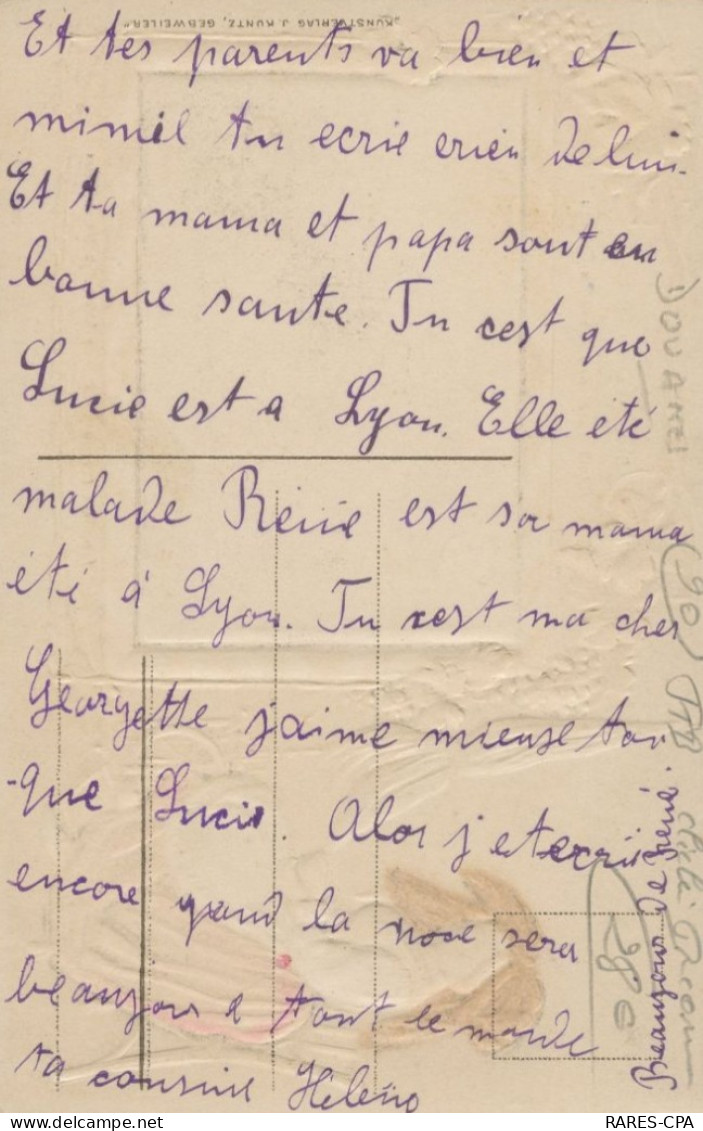 "KUNSTVERLAG J. KUNTZ, GEBWEILER"
Et tes parents va bien et
mimil tu ecrie erien de lui.
Et ta mama et papa sont en
bonne sante. Tu cest que
Lucie est a Lyon. Elle été
malade Réné est sa mama
été à Lyon. Tu cest ma cher
Georgette j'aime mieuse toi
que Lucie. Alor j etecrii
encore quand la noce sera
beaujour a tout le monde
ta cousine Hélène
Beaujour de René.
DOUANES
90
280
RARES-CPA